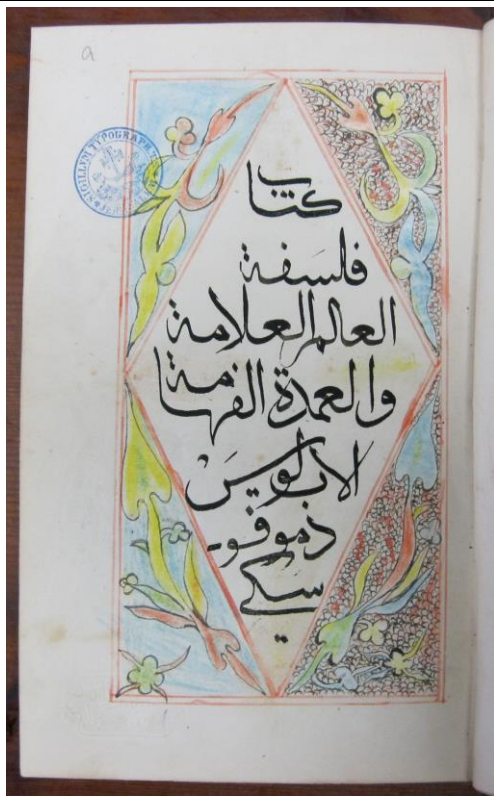 a
SIGILLUM TYPOGRAPH
كتاب
فلسفة
العالم العلامة
والعمدة الفهامة
الاب لويس
دموفو-
سكي